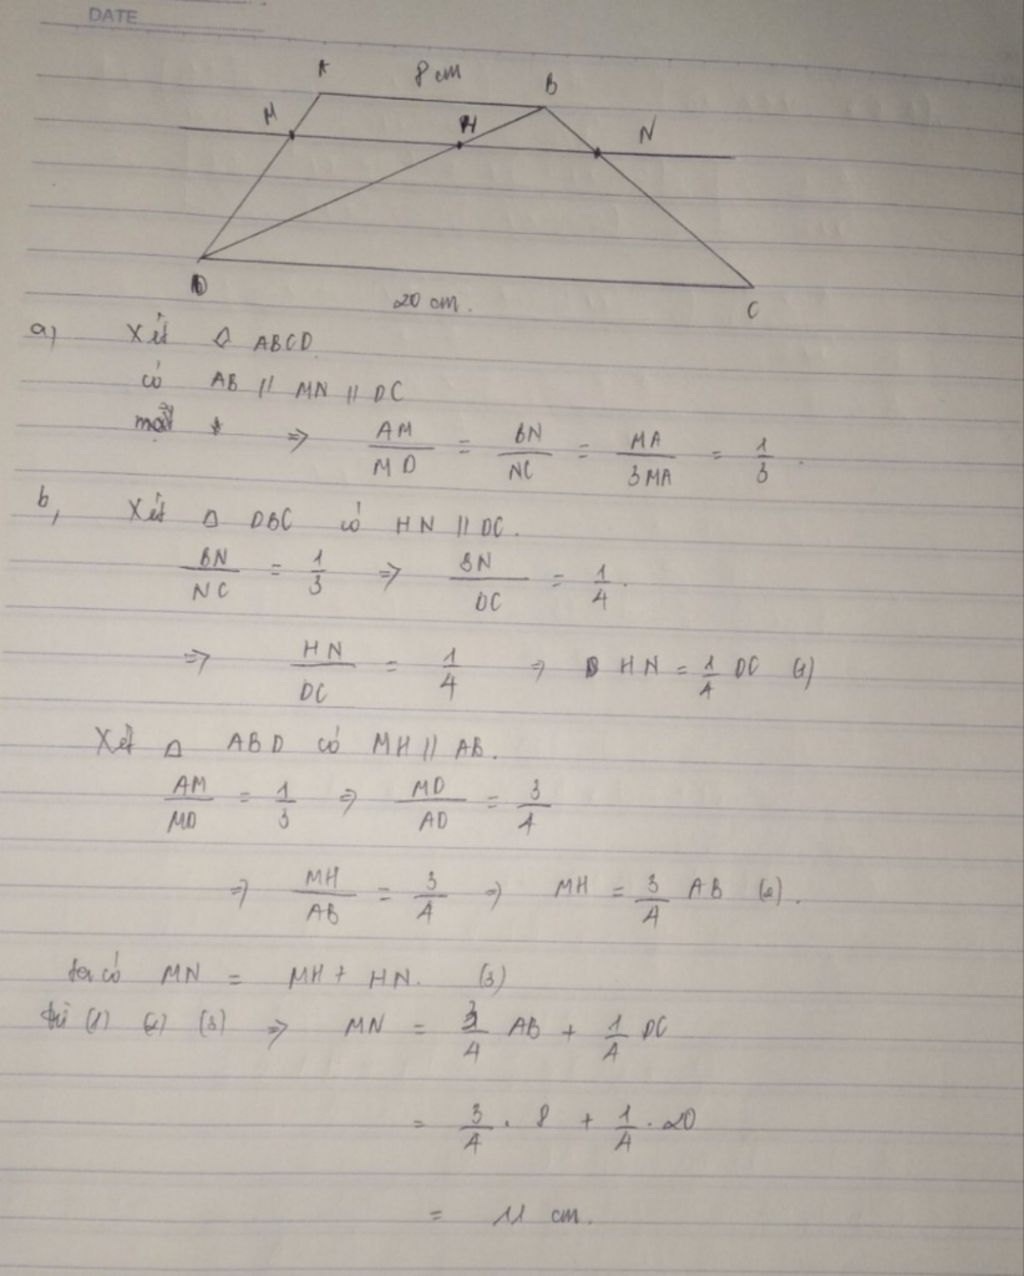 DATE
A 8 cm B
M H N
D 20 cm. C
a) Xét ◊ ABCD
có AB // MN // DC
⇒ AM/MD = BN/NC = MA/3MA = 1/3.
b, Xét △ DBC có HN // DC.
BN/NC = 1/3 ⇒ BN/DC = 1/4.
⇒ HN/DC = 1/4 ⇒ HN = 1/4 DC (1)
Xét △ ABD có MH // AB.
AM/MD = 1/3 ⇒ MD/AD = 3/4
⇒ MH/AB = 3/4 ⇒ MH = 3/4 AB (2).
ta có MN = MH + HN. (3)
từ (1) (2) (3) ⇒ MN = 3/4 AB + 1/4 DC
= 3/4 . 8 + 1/4 . 20
= 11 cm.